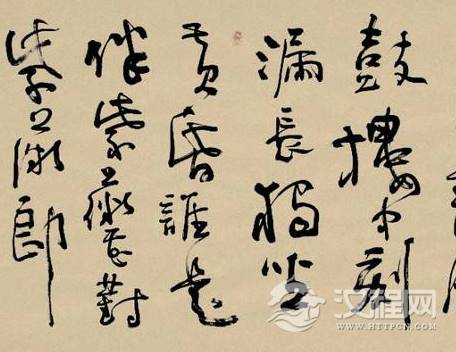 鼓樓中刻
漏長獨坐
黄昏誰是
伴紫薇花對
紫微郎
汉程网
WWW.HTTPCN.COM